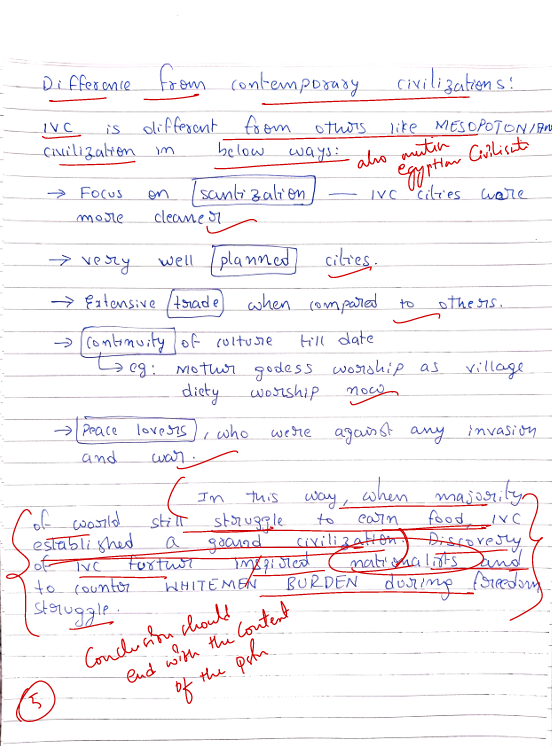 Difference from contemporary civilizations:
IVC is different from others like MESOPOTONIAN
civilization in below ways:
also mention
egyptian Civilisatn
→ Focus on sanitization — IVC cities were
more cleaner
→ very well planned cities.
→ Extensive trade when compared to others.
→ Continuity of culture till date
↳ eg: Mother godess worship as village
diety worship now
→ Peace lovers, who were against any invasion
and war.
In this way, when majority
of world still struggle to earn food, IVC
established a grand civilization. Discovery
of IVC further inspired nationalists and
to counter WHITEMEN BURDEN during freedom
struggle.
Conclusion should
end with the content
of the qstn
5